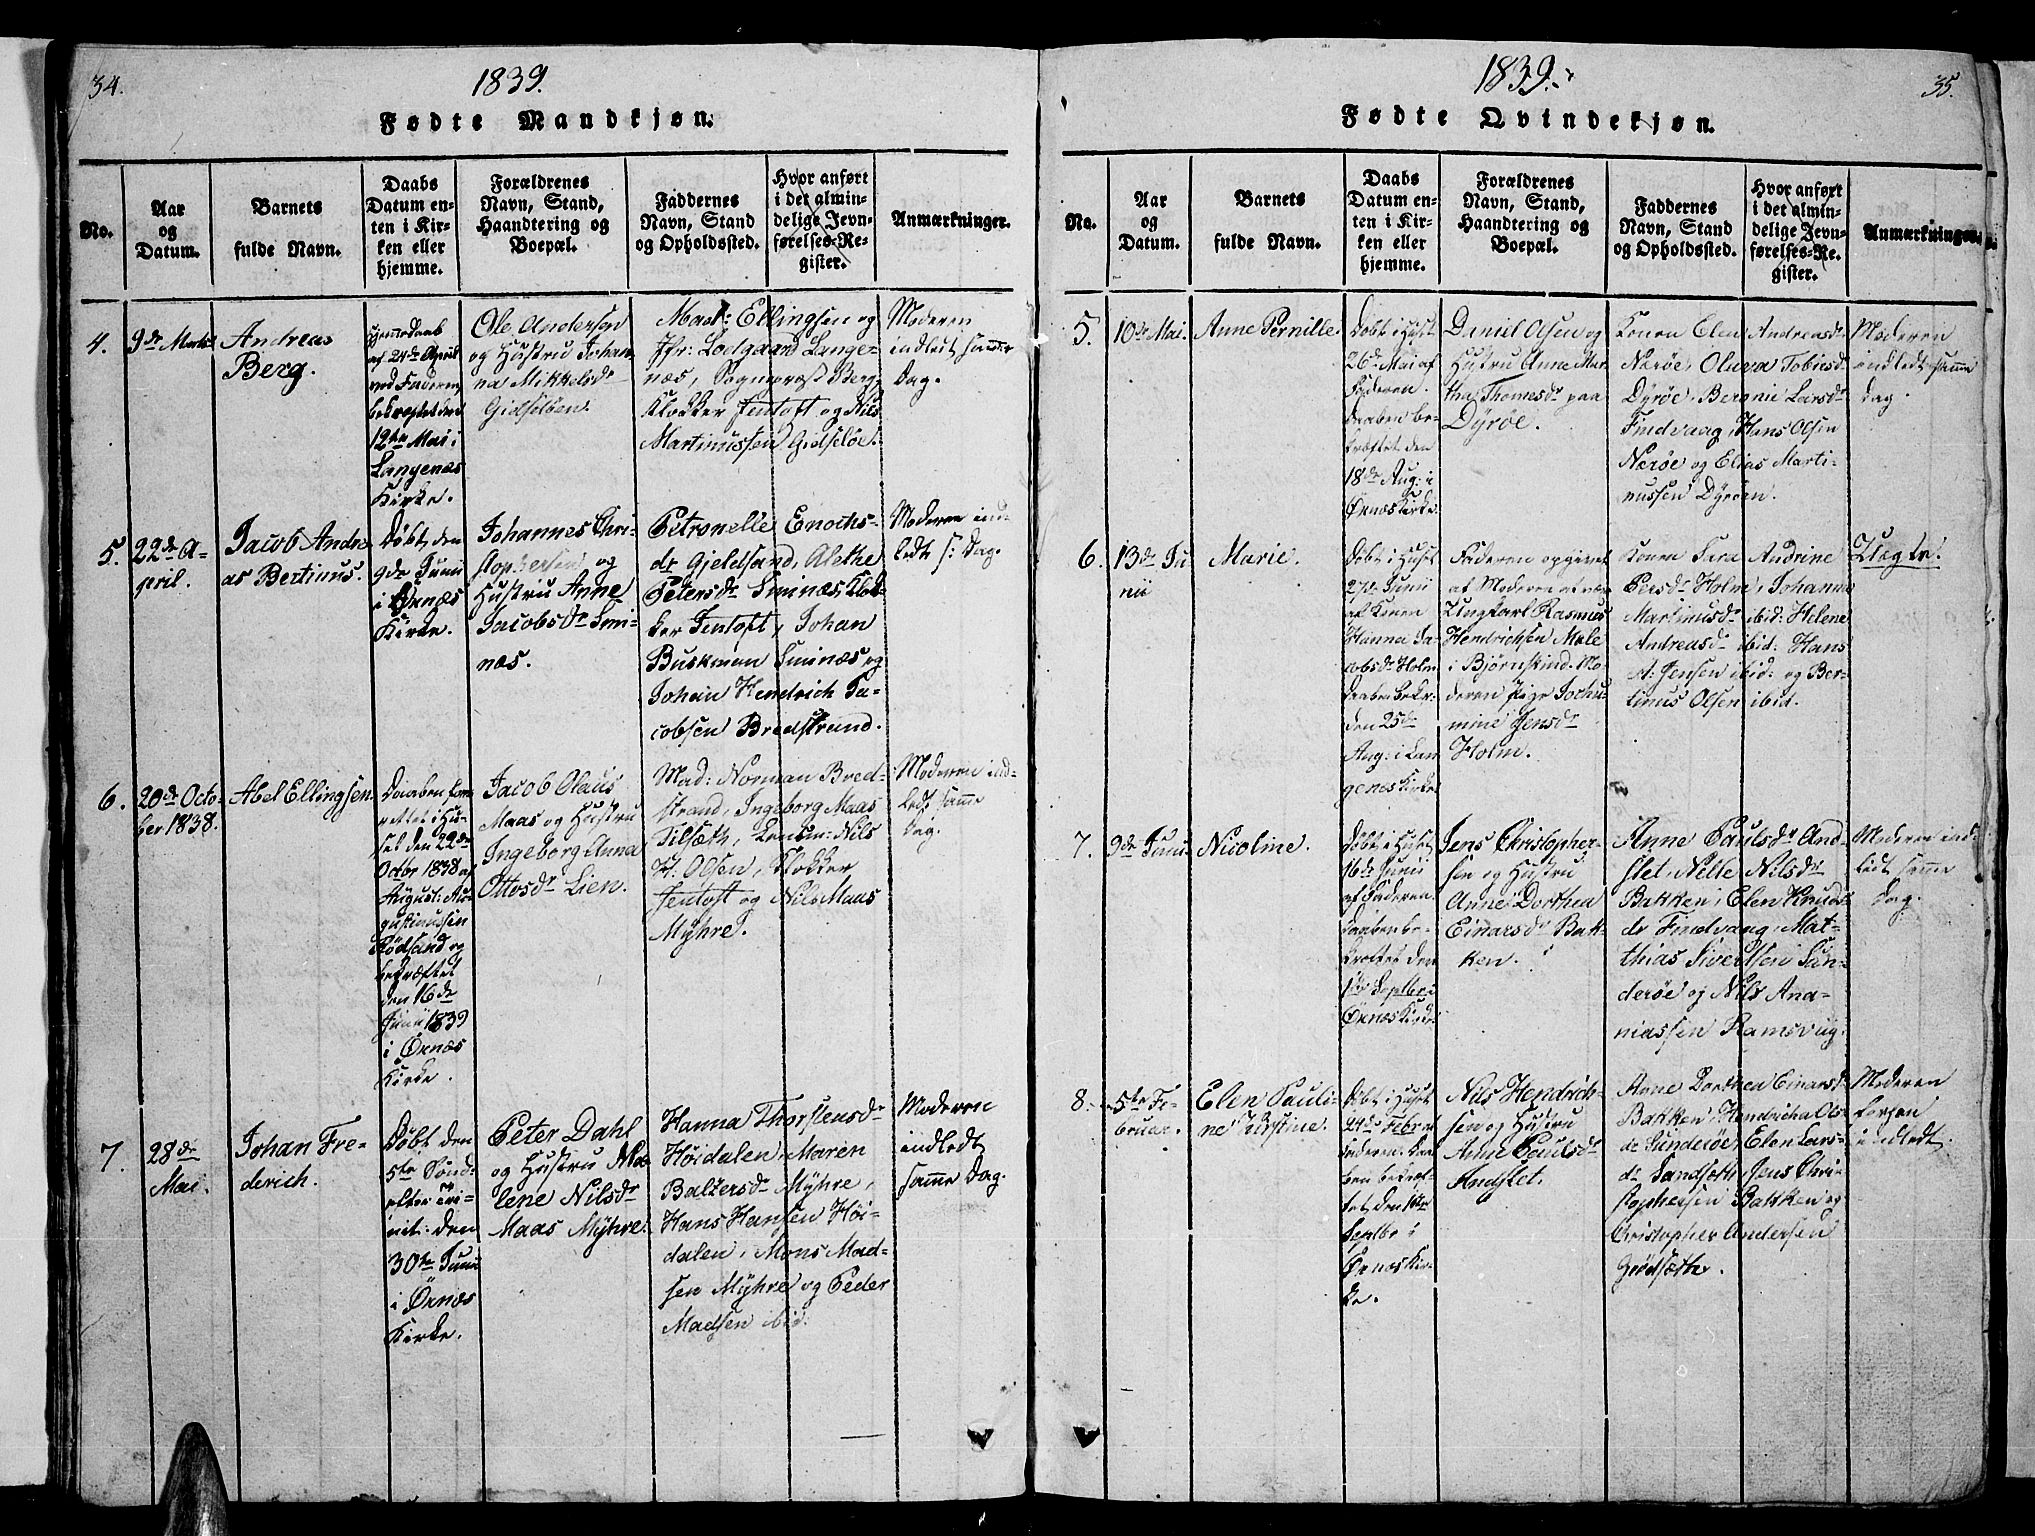 34.
1839.
Fødte Mandkjøn.
No.
Aar
og
Datum.
Barnets
fulde Navn.
Daabs
Datum en-
ten i Kir-
ken eller
hjemme.
Forældrenes
Navn, Stand,
Haandtering og
Boepæl.
Faddernes
Navn, Stand
og Opholdssted.
Hvor anført
i det almin-
delige Jevn-
førelses-Re-
gister.
Anmærkninger.
4.
9de Marts
Andreas
Berg.
Hjemmedaab
af 24de April
ved Faderen,
bekræftet den
12te Mai i
Langenæs
Kirke.
Ole Andersen
og Hustru Johan-
na Mikkelsdr
Gidsløen.
Mad: Ellingsen og
Jfr: Lodgaard Lange-
næs, Sognepræst Berg,
Klokker Jentoft og Nils
Martinussen Gidsløe.
Moderen
indledt samme
Dag.
5.
22de A-
pril.
Jacob Andre-
as Bertinus.
Døbt den
9de Junii
i Ørnæs
Kirke.
Johannes Chri-
stophersen og
Hustru Anne
Jacobsdr Smi-
næs.
Petronelle Enochs-
dr Gjeldsand, Alethe
Petersdr Sminæs, Klok-
ker Jentoft, Johan
Buskman Sminæs og
Johan Hendrich Ja-
cobsen Bredstrand.
Moderen ind-
ledt s: Dag.
6.
20de Octo-
ber 1838.
Abel Ellingsen.
Daaben for-
rettet i Hu-
set den 22de
Octbr 1838 af
August: Au-
gustinussen
Rødsand og
bekræftet
den 16de
Junii 1839
i Ørnæs
Kirke.
Jacob Olaus
Maas og Hustru
Ingeborg Anna
Ottosdr Lien.
Mad: Norman Bred-
strand, Ingeborg Maas
Tilsæth, Lensm: Nils
H. Olsen, Klokker
Jentoft og Nils Maas
Myhre.
Moderen ind-
ledt samme
Dag.
7.
28de
Mai.
Johan Fre-
derich.
Døbt den
5te Sønd:
efter Tri-
nit: den
30te Junii
i Ørnæs
Kirke.
Peter Dahl
og Hustru Ma-
lene Nilsdr
Maas Myhre.
Hanna Thorstensdr
Høidalen, Maren
Baltzersdr Myhre,
Hans Hansen Høi-
dalen, Mons Mad-
sen Myhre og Peder
Madsen ibid:
Moderen
indledt
samme Dag.
35.
1839.
Fødte Qvindekjøn.
No.
Aar
og
Datum.
Barnets
fulde Navn.
Daabs
Datum en-
ten i Kir-
ken eller
hjemme.
Forældrenes
Navn, Stand,
Haandtering og
Boepæl.
Faddernes
Navn, Stand
og Opholdssted.
Hvor anført
i det almin-
delige Jevn-
førelses-Re-
gister.
Anmærkninger.
5.
10de Mai.
Anne Pernille.
Døbt i Huset
26de Mai af
Faderen.
Daaben be-
kræftet den
18de Aug: i
Ørnæs Kirke
Daniel Olsen og
Hustru Anne Mar-
tha Thomesdr paa
Dyrøe.
Konen Elen Andreasdr
Nærøe, Oluva Tobiasdr
Dyrøe, Beronie Larsdr
Findvaag, Hans Olsen
Nærøe og Elias Marti-
nussen Dyrøen.
Moderen
indledt samme
Dag.
6.
13de Ju-
nii
Marie.
Døbt i Huset
27de Junii
af Konen
Hanna Ja-
cobsdr Holm
Daaben bekr:
den 25de
Aug: i Lan-
genæs Kirke
Faderen opgivet
af Moderen at være
Ungkarl Rasmus
Hendrichsen Mele
i Bjørnskind. Mo-
deren Pige Jochu-
mine Jensdr
Holm.
Konen Sara Andrine
Persdr Holm, Johanna
Martinusdr ibid: Helene
Andreasdr ibid: Hans
A: Jensen ibid: og Ber-
tinus Olsen ibid.
Uægte.
7.
9de Junii
Nicoline.
Døbt i Huset
16de Junii
af Faderen.
Daaben be-
kræftet den
1ste Septbr i
Ørnæs Kirke
Jens Christopher-
sen og Hustru
Anne Dorthea
Einarsdr Bak-
ken.
Anne Paulsdr And-
stet, Nille Nilsdr
Bakken, Elen Knuds-
dr Findvaag, Mat-
thias Sivertsen San-
derøe og Nils Ana-
niassen Ramsvig.
Moderen ind-
ledt samme
Dag.
8.
5te Fe-
bruar.
Elen Pauli-
ne Kirstine.
Døbt i Huset
24de Febr af
Faderen. Daa-
ben bekræf-
tet den
Septbr i
Ørnæs Kir-
ke.
Nils Hendrich-
sen og Hustru
Anne Paulsdr
Andstet.
Anne Dorthea Einarsd:
Bakken, Hendricha Ols-
dr Sanderøe, Elen Lars-
dr Sandsæth, Jens Chri-
stophersen Bakken og
Christopher Andersen
Grødsæther.
Moderen
forhen
indledt.